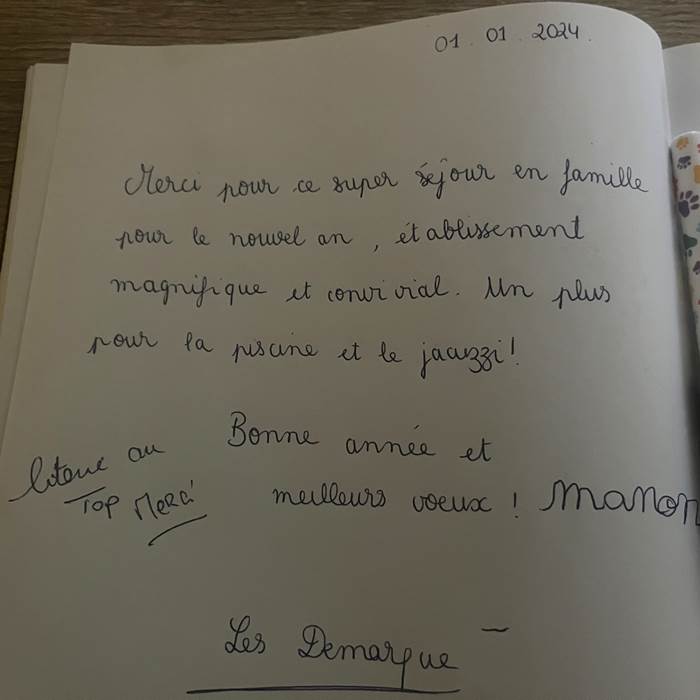 01.01.2024.
Merci pour ce super séjour en famille
pour le nouvel an, établissement
magnifique et convivial. Un plus
pour la piscine et le jacuzzi!
Bonne année et
meilleurs voeux! Manon
au
Top Merci
Les Demarque